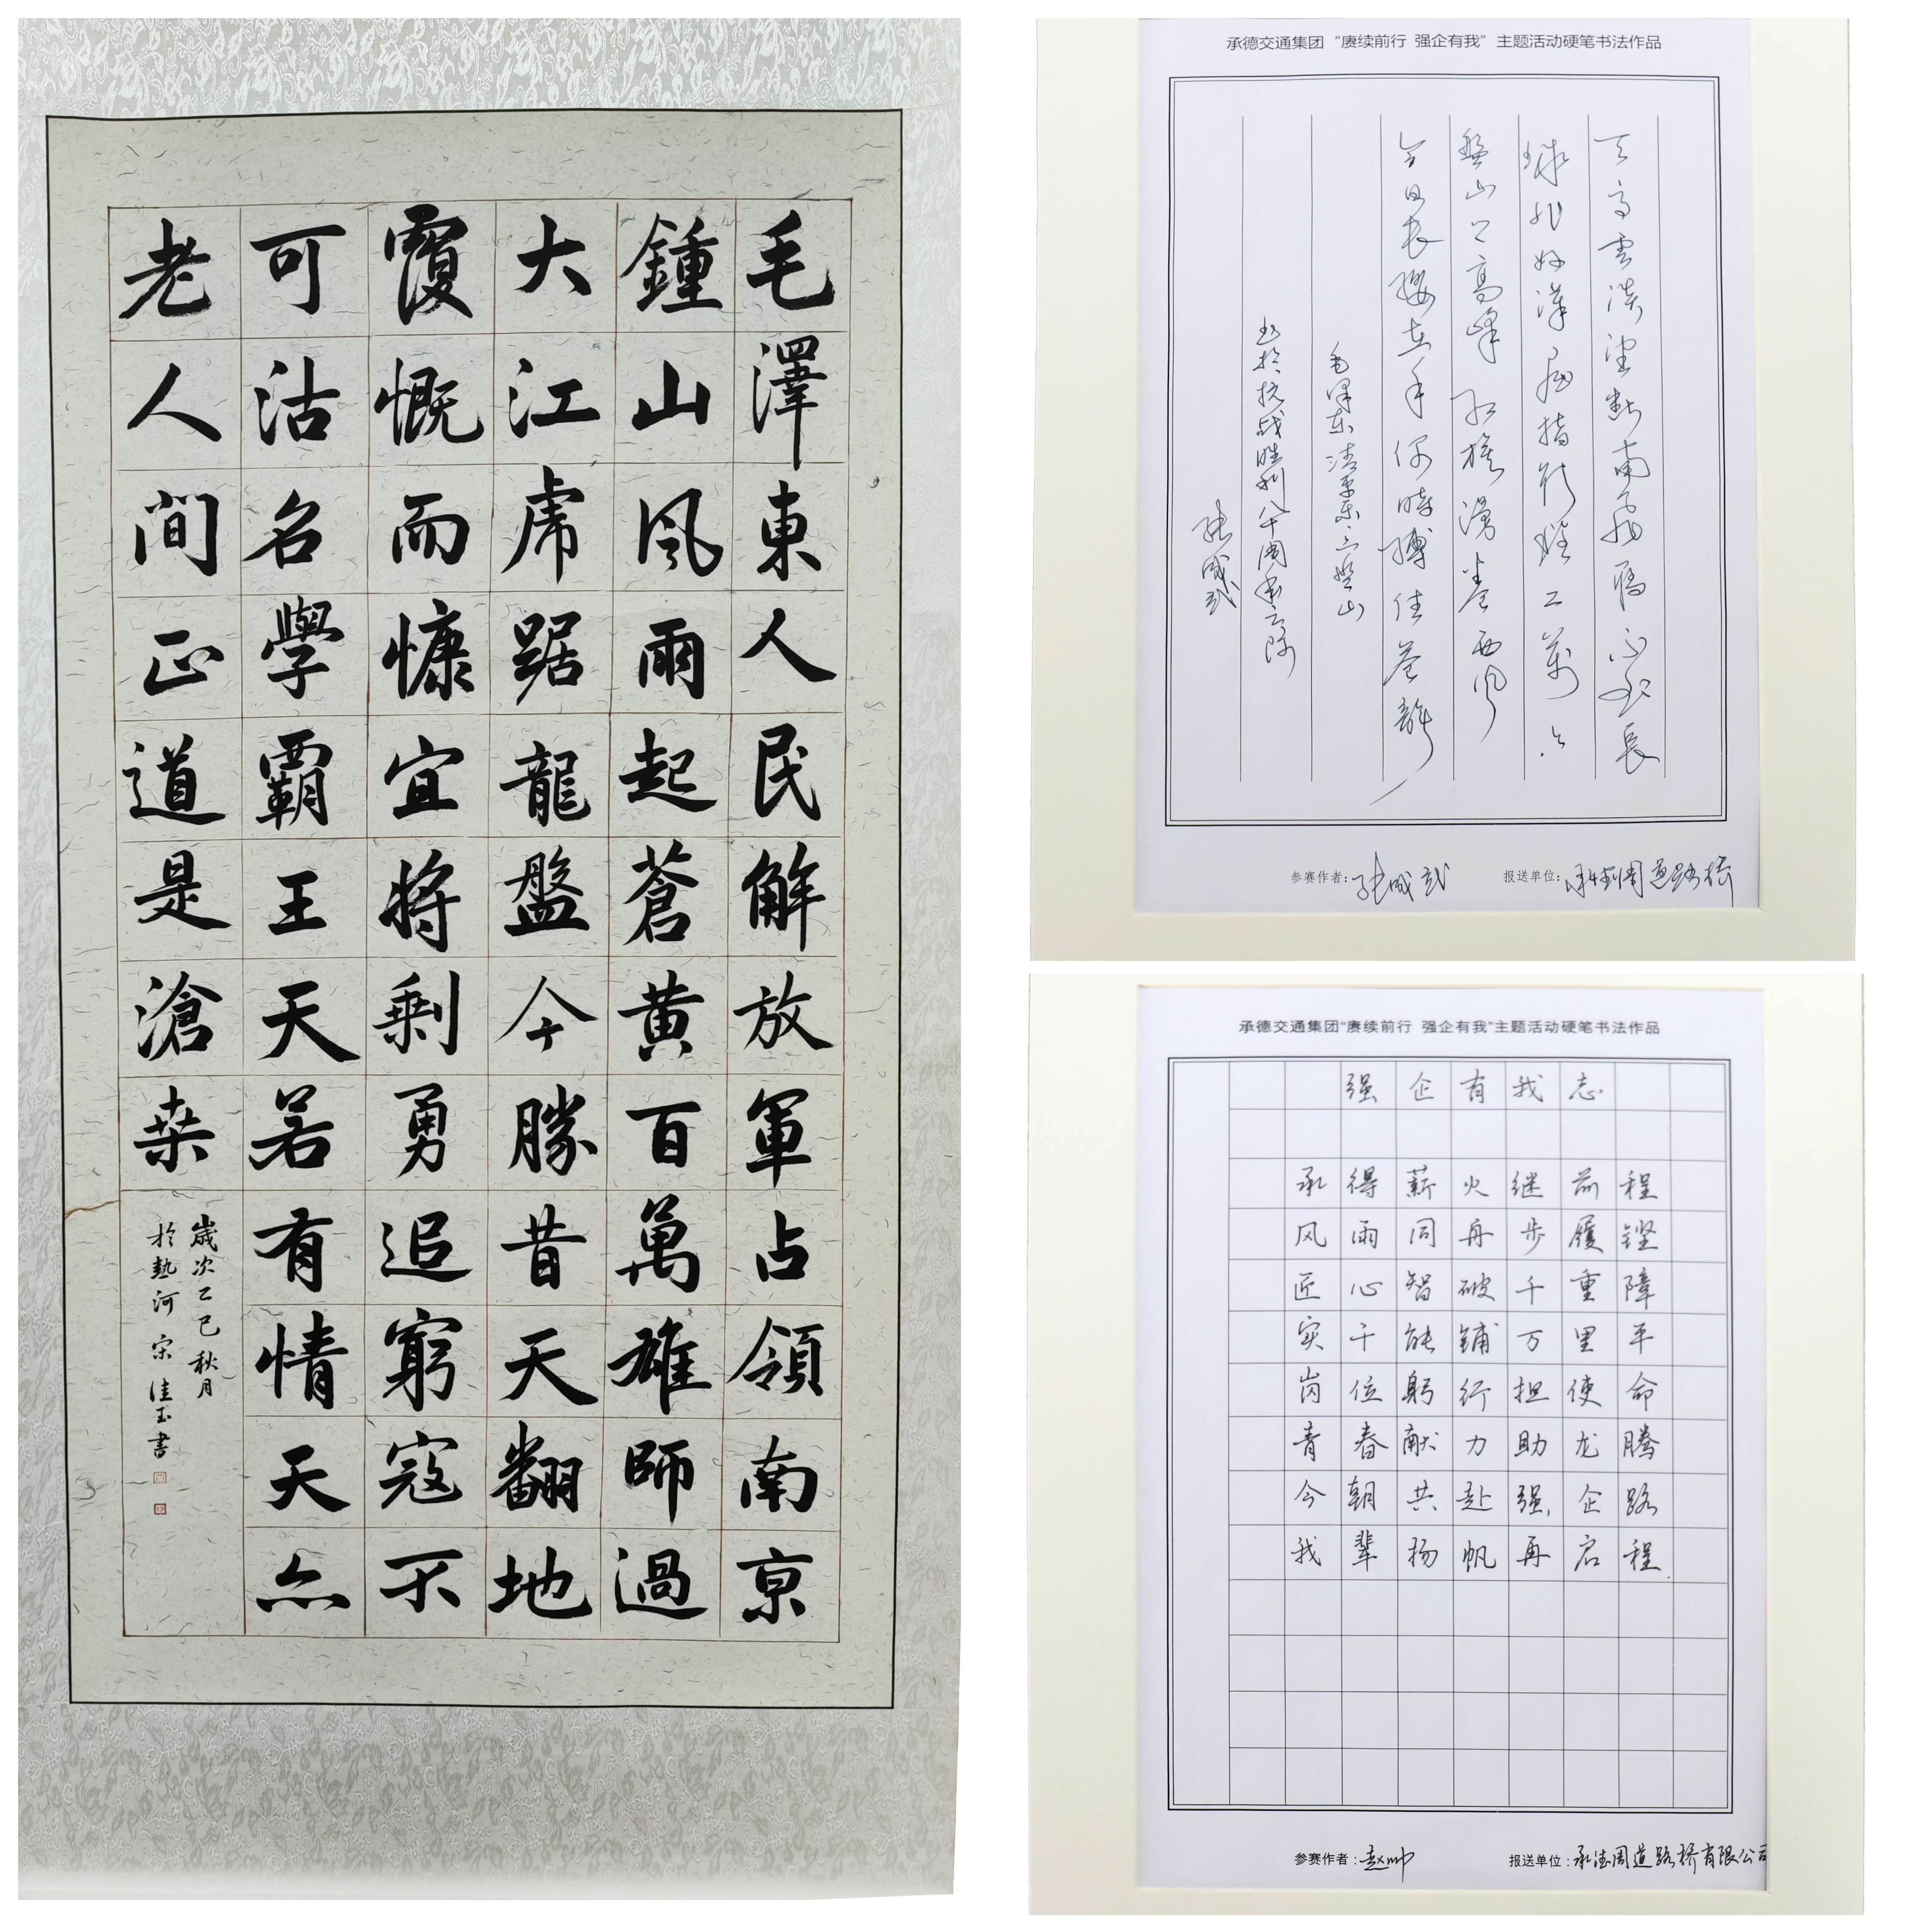 毛澤東人民解放軍占領南京
鍾山風雨起蒼黄百萬雄師過
大江虎踞龍盤今勝昔天翻地
覆慨而慷宜將剩勇追窮寇不
可沽名學霸王天若有情天亦
老人間正道是滄桑
歲次乙巳秋月
於熱河宋佳玉書
承德交通集团“赓续前行 强企有我”主题活动硬笔书法作品
天高雲淡望断南飛雁不到長
城非好漢屈指行程二萬六
盤山上高峰红旗漫卷西风
今日長缨在手何時縛住蒼龍
毛泽东清平乐·六盘山
书於抗战胜利八十周年之际
参赛作者:
报送单位:承德周道路桥
承德交通集团“赓续前行 强企有我”主题活动硬笔书法作品
强企有我志
承得薪火继前程
风雨同舟步履铿
匠心智破千重障
实干能铺万里平
岗位躬行担使命
青春献力助龙腾
今朝共赴强企路
我辈扬帆再启程.
参赛作者:赵帅
报送单位:承德周道路桥有限公司